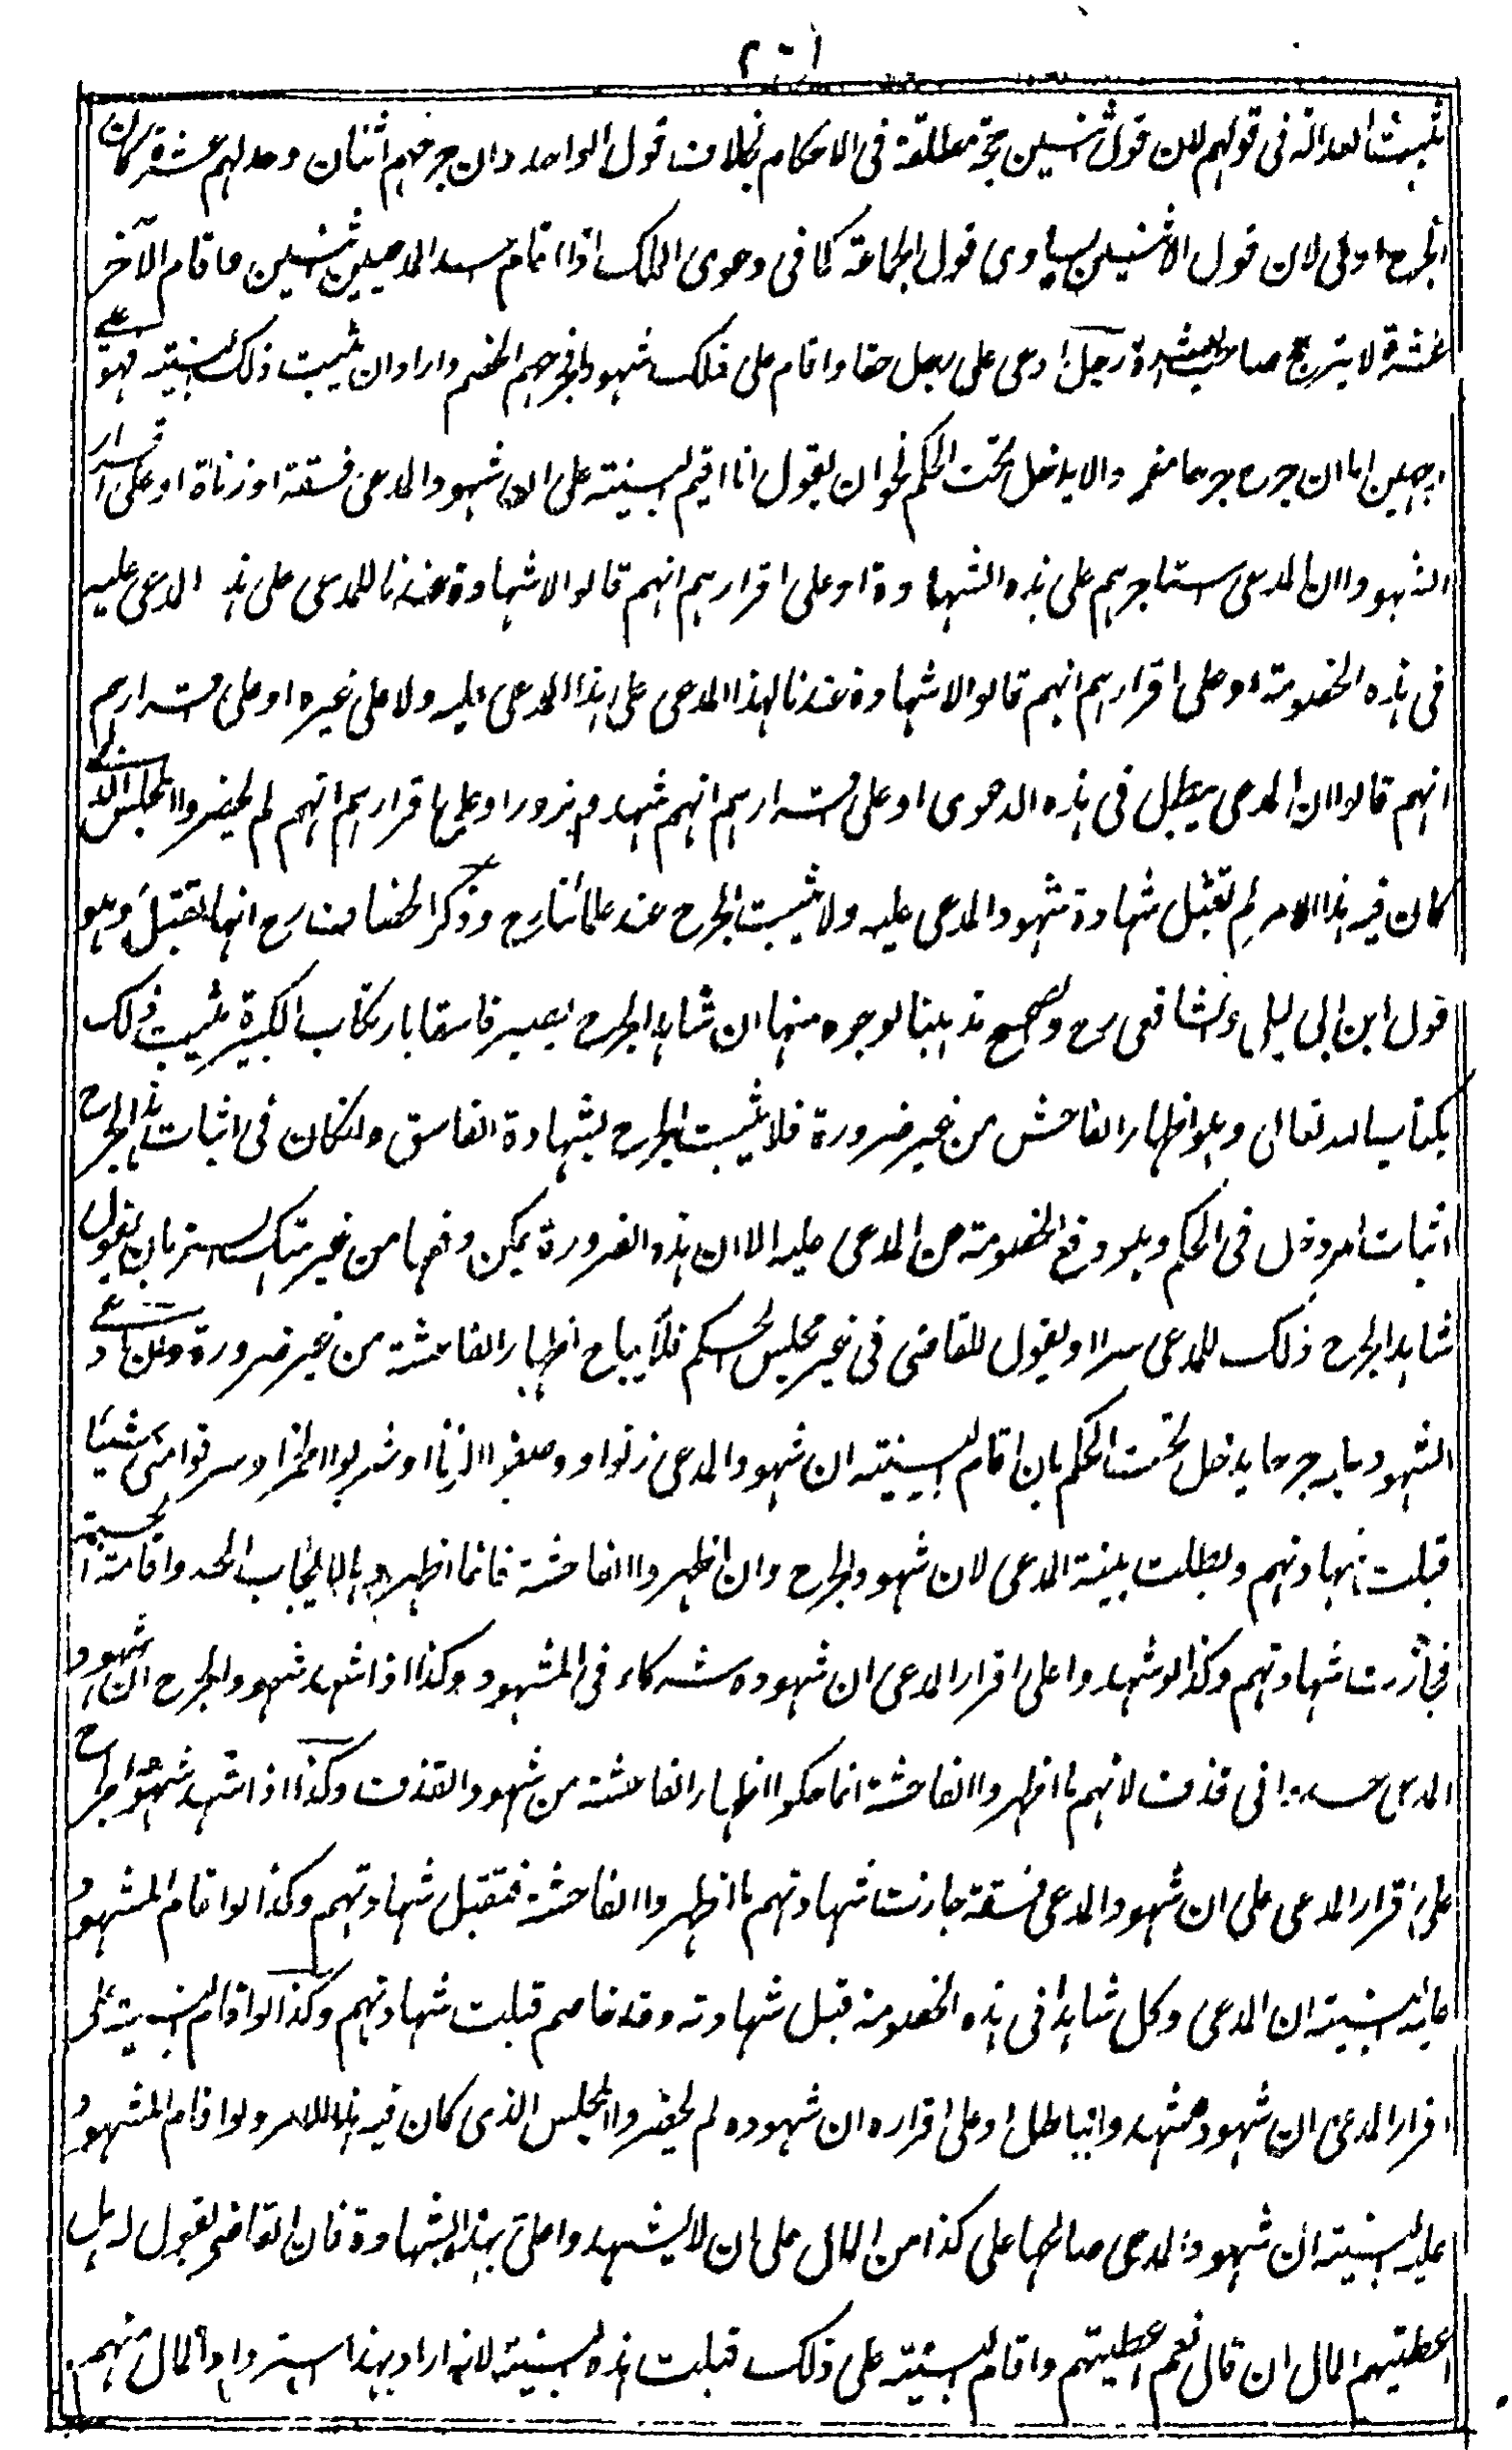 تثبت العدالة فى قولهم لان قول اثنين حجة مطلقة فى الاحكام بخلاف قول الواحد وان جرحهم اثنان وعدلهم عشرة كان
الجرح اولى لان قول الاثنين يساوى قول الجماعة كما فى دعوى الملك اذا اقام احد المدعيين اثنين واقام الآخر
عشرة لا يترجح صاحب العشرة رجل ادعى على رجل حقا واقام على ذلك شهودا فجرحهم الخصم واراد ان يثبت ذلك بالبينة فهو على
وجهين اما ان جرح جرحا مفردا لا يدخل تحت الحكم نحو ان يقول انا اقيم البينة على ان شهود المدعى فسقة او زناة او على اقرار
الشهود ان المدعى استاجرهم على هذه الشهادة او على اقرارهم انهم قالوا لا شهادة عندنا للمدعى على هذا المدعى عليه
فى هذه الخصومة او على اقرارهم انهم قالوا لا شهادة عندنا لهذا المدعى على هذا المدعى عليه ولا على غيره او على اقرارهم
انهم قالوا ان المدعى مبطل فى هذه الدعوى او على اقرارهم انهم شهدوا بزور او على اقرارهم انهم لم يحضروا المجلس الذى
كان فيه هذا الامر لم تقبل شهادة شهود المدعى عليه ولا يثبت الجرح عند علمائنا رح وذكر الخصاف رح انها تقبل وهو
قول ابن ابى ليلى والشافعى رح والصحيح مذهبنا لوجوه منها ان شاهد الجرح يصير فاسقا بارتكاب الكبيرة يثبت ذلك
بكتاب الله تعالى وهو اظهار الفاحش من غير ضرورة فلا يثبت الجرح بشهادة الفاسق ولئن كان فى اثبات هذا الجرح
اثبات امر دخل فى الحكم وهو دفع الخصومة عن المدعى عليه الا ان هذه الضرورة يمكن دفعها من غير هتك الستر بان يقول
شاهد الجرح ذلك للمدعى سرا او يقول للقاضى فى غير مجلس الحكم فلا يباح اظهار الفاحشة من غير ضرورة وان ادعى
الشهود عليه جرحا يدخل تحت الحكم بان اقام البينة ان شهود المدعى زنوا ووصفوا الزنا او شربوا الخمر او سرقوا منى شيئا
قبلت شهادتهم وبطلت بينة المدعى لان شهود الجرح وان اظهروا الفاحشة فانما اظهروها لايجاب الحد واقامة الحسبة
فجازت شهادتهم وكذا لو شهدوا على اقرار المدعى ان شهوده شركاء فى المشهود وكذا اذا شهد شهود الجرح ان شهود
المدعى حدوا فى قذف لانهم ما اظهروا الفاحشة انما حكوا اظهار الفاحشة من شهود القذف وكذا اذا شهد شهود الجرح
على اقرار المدعى على ان شهود المدعى فسقة جازت شهادتهم ما اظهروا الفاحشة فتقبل شهادتهم وكذا لو اقام المشهود
عليه البينة ان المدعى وكل شاهدا فى هذه الخصومة قبل شهادته وقد خاصم قبلت شهادتهم وكذا لو اقام البينة على
اقرار المدعى ان شهوده شهدوا بباطل او على اقراره ان شهوده لم يحضروا المجلس الذى كان فيه هذا الامر ولو اقام المشهود
عليه البينة ان شهود المدعى صالحها على كذا من المال على ان لا يشهدوا على بهذه الشهادة فان القاضى يقول له هل
اعطيتهم المال ان قال نعم اعطيتهم واقام البينة على ذلك قبلت هذه البينة لانه اراد بهذا استرداد المال منهم